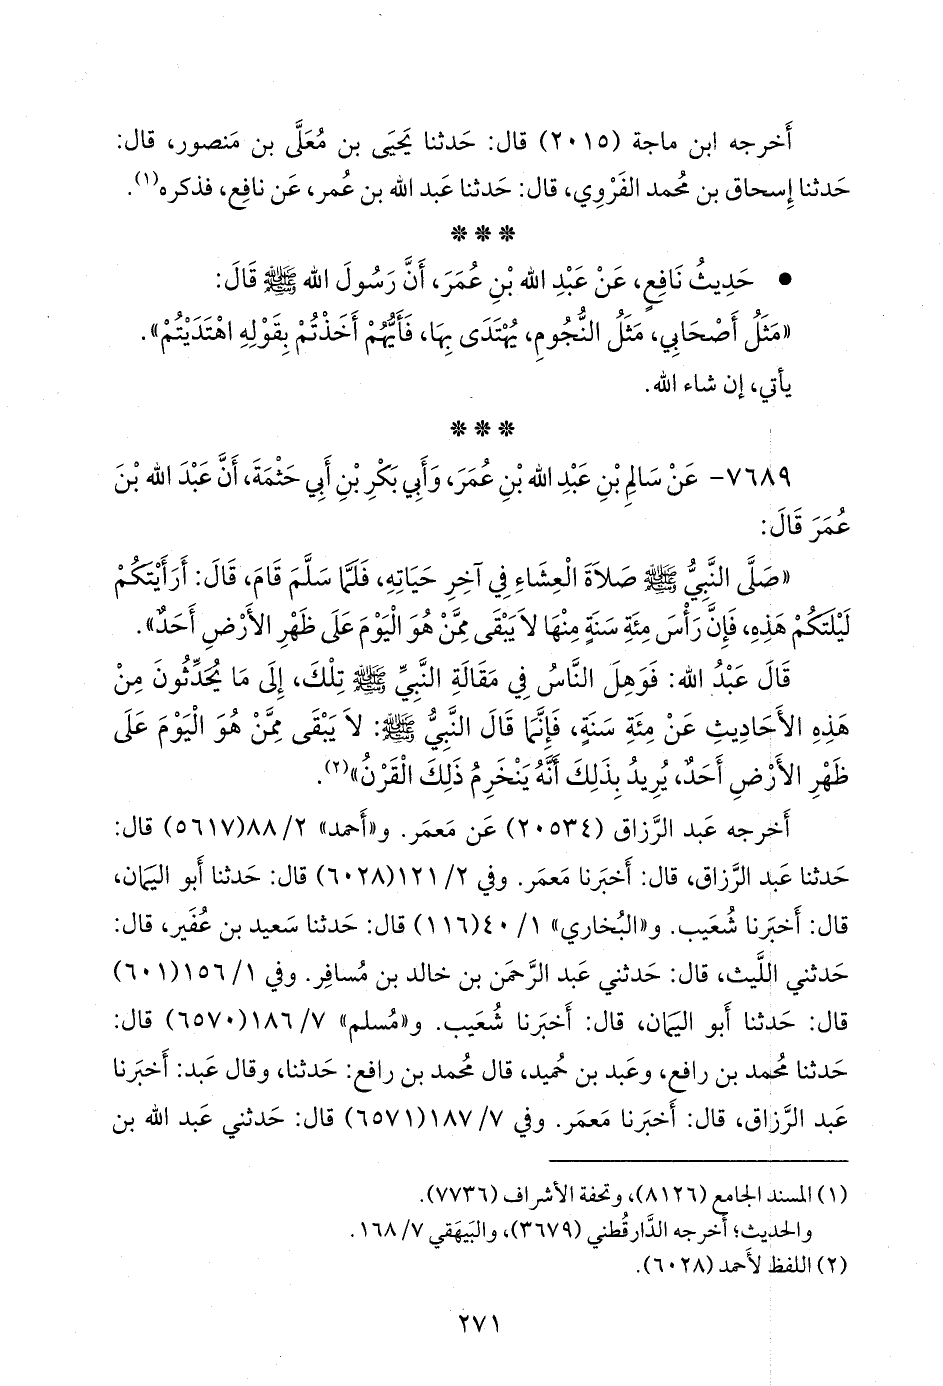 أَخرجه ابن ماجة (٢٠١٥) قال: حَدثنا يَحيَى بن مُعَلَّى بن مَنصور، قال:
حَدثنا إِسحاق بن مُحمد الفَرْوِي، قال: حَدثنا عَبد الله بن عُمر، عَن نافِع، فذكره(١).
* * *
● حَدِيثُ نَافِعٍ، عَنْ عَبْدِ الله بْنِ عُمَرَ، أَنَّ رَسُولَ الله ﷺ قَالَ:
«مَثَلُ أَصْحَابِي، مَثَلُ النُّجُومِ، يُهْتَدَى بِهَا، فَأَيُّهُمْ أَخَذْتُمْ بِقَوْلِهِ اهْتَدَيْتُمْ».
يأتي، إن شاء الله.
* * *
٧٦٨٩- عَنْ سَالِمِ بْنِ عَبْدِ الله بْنِ عُمَرَ، وَأَبِي بَكْرِ بْنِ أَبِي حَثْمَةَ، أَنَّ عَبْدَ الله بْنَ
عُمَرَ قَالَ:
«صَلَّى النَّبِيُّ ﷺ صَلاَةَ الْعِشَاءِ فِي آخِرِ حَيَاتِهِ، فَلَمَّا سَلَّمَ قَامَ، قَالَ: أَرَأَيْتَكُمْ
لَيْلَتَكُمْ هَذِهِ، فَإِنَّ رَأْسَ مِئَةِ سَنَةٍ مِنْهَا لاَ يَبْقَى مِمَّنْ هُوَ الْيَوْمَ عَلَى ظَهْرِ الأَرْضِ أَحَدٌ».
قَالَ عَبْدُ الله: فَوَهِلَ النَّاسُ فِي مَقَالَةِ النَّبِيِّ ﷺ تِلْكَ، إِلَى مَا يُحَدِّثُونَ مِنْ
هَذِهِ الأَحَادِيثِ عَنْ مِئَةِ سَنَةٍ، فَإِنَّمَا قَالَ النَّبِيُّ ﷺ: لاَ يَبْقَى مِمَّنْ هُوَ الْيَوْمَ عَلَى
ظَهْرِ الأَرْضِ أَحَدٌ، يُرِيدُ بِذَلِكَ أَنَّهُ يَنْخَرِمُ ذَلِكَ الْقَرْنُ»(٢).
أَخرجه عَبد الرَّزاق (٢٠٥٣٤) عَن مَعمَر. و«أَحمد» ٢/ ٨٨(٥٦١٧) قال:
حَدثنا عَبد الرَّزاق، قال: أَخبَرنا مَعمَر. وفي ٢/ ١٢١(٦٠٢٨) قال: حَدثنا أَبو اليَمان،
قال: أَخبَرنا شُعَيب. و«البُخاري» ١/ ٤٠(١١٦) قال: حَدثنا سَعيد بن عُفَير، قال:
حَدثني اللَّيث، قال: حَدثني عَبد الرَّحمَن بن خالد بن مُسافِر. وفي ١/ ١٥٦(٦٠١)
قال: حَدثنا أَبو اليَمان، قال: أَخبَرنا شُعَيب. و«مُسلم» ٧/ ١٨٦(٦٥٧٠) قال:
حَدثنا مُحمد بن رافع، وعَبد بن حُميد، قال مُحمد بن رافع: حَدثنا، وقال عَبد: أَخبَرنا
عَبد الرَّزاق، قال: أَخبَرنا مَعمَر. وفي ٧/ ١٨٧(٦٥٧١) قال: حَدثني عَبد الله بن
(١) المسند الجامع (٨١٢٦)، وتحفة الأشراف (٧٧٣٦).
والحديث؛ أَخرجه الدَّارقُطني (٣٦٧٩)، والبَيهَقي ٧/ ١٦٨.
(٢) اللفظ لأَحمد (٦٠٢٨).
٢٧١